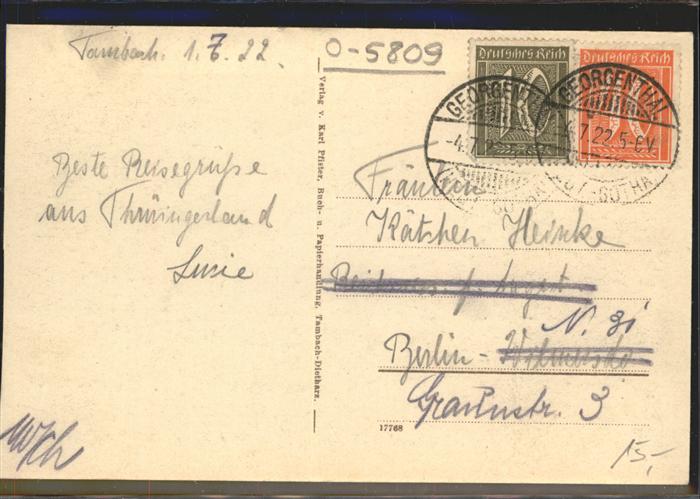 Tambach. 1.7.22.
O-5809
Deutsches Reich
Deutsches Reich
GEORGENTHAL
-4.7.2
GEORGENTHAL
4.7.22.5-6V.
GOTHA
Beste Reisegrüße
aus Thüringerland
Susie
Verlag v. Karl Pfister, Buch- u. Papierhandlung, Tambach-Dietharz.
Fräulein
Kätchen Heinke
N. 31
Berlin-
Graunstr. 3
17768
15,-